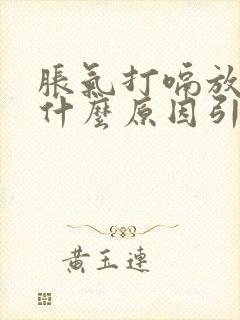 脹氣打嗝放
什麼原因引
黃玉連